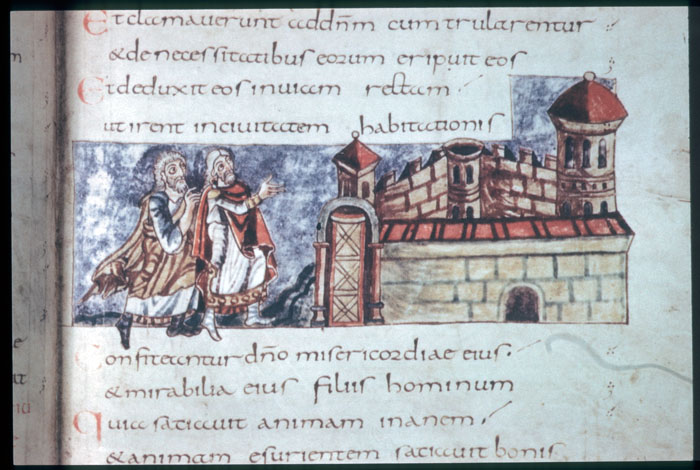 Et clamauerunt ad dn̄m cum trularentur
& de necessitatibus eorum eripuit eos
Et deduxit eos in uiam rectam
ut irent in ciuitatem habitationis
Confiteantur dn̄o misericordiae eius.
& mirabilia eius filiis hominum
Quia satiauit animam inanem
& animam esurientem satiauit bonis